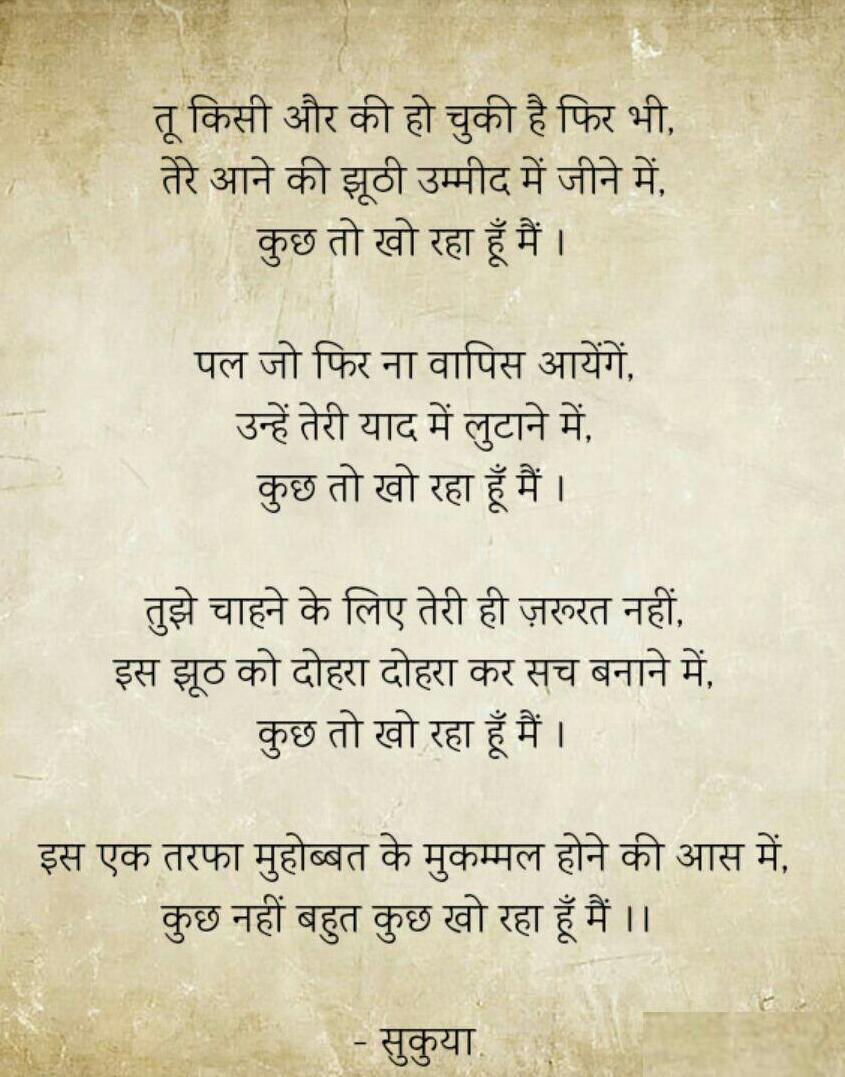 तू किसी और की हो चुकी है फिर भी,
तेरे आने की झूठी उम्मीद में जीने में,
कुछ तो खो रहा हूँ मैं ।
पल जो फिर ना वापिस आयेंगें,
उन्हें तेरी याद में लुटाने में,
कुछ तो खो रहा हूँ मैं ।
तुझे चाहने के लिए तेरी ही ज़रूरत नहीं,
इस झूठ को दोहरा दोहरा कर सच बनाने में,
कुछ तो खो रहा हूँ मैं ।
इस एक तरफा मुहोब्बत के मुकम्मल होने की आस में,
कुछ नहीं बहुत कुछ खो रहा हूँ मैं ।।
- सुकुया